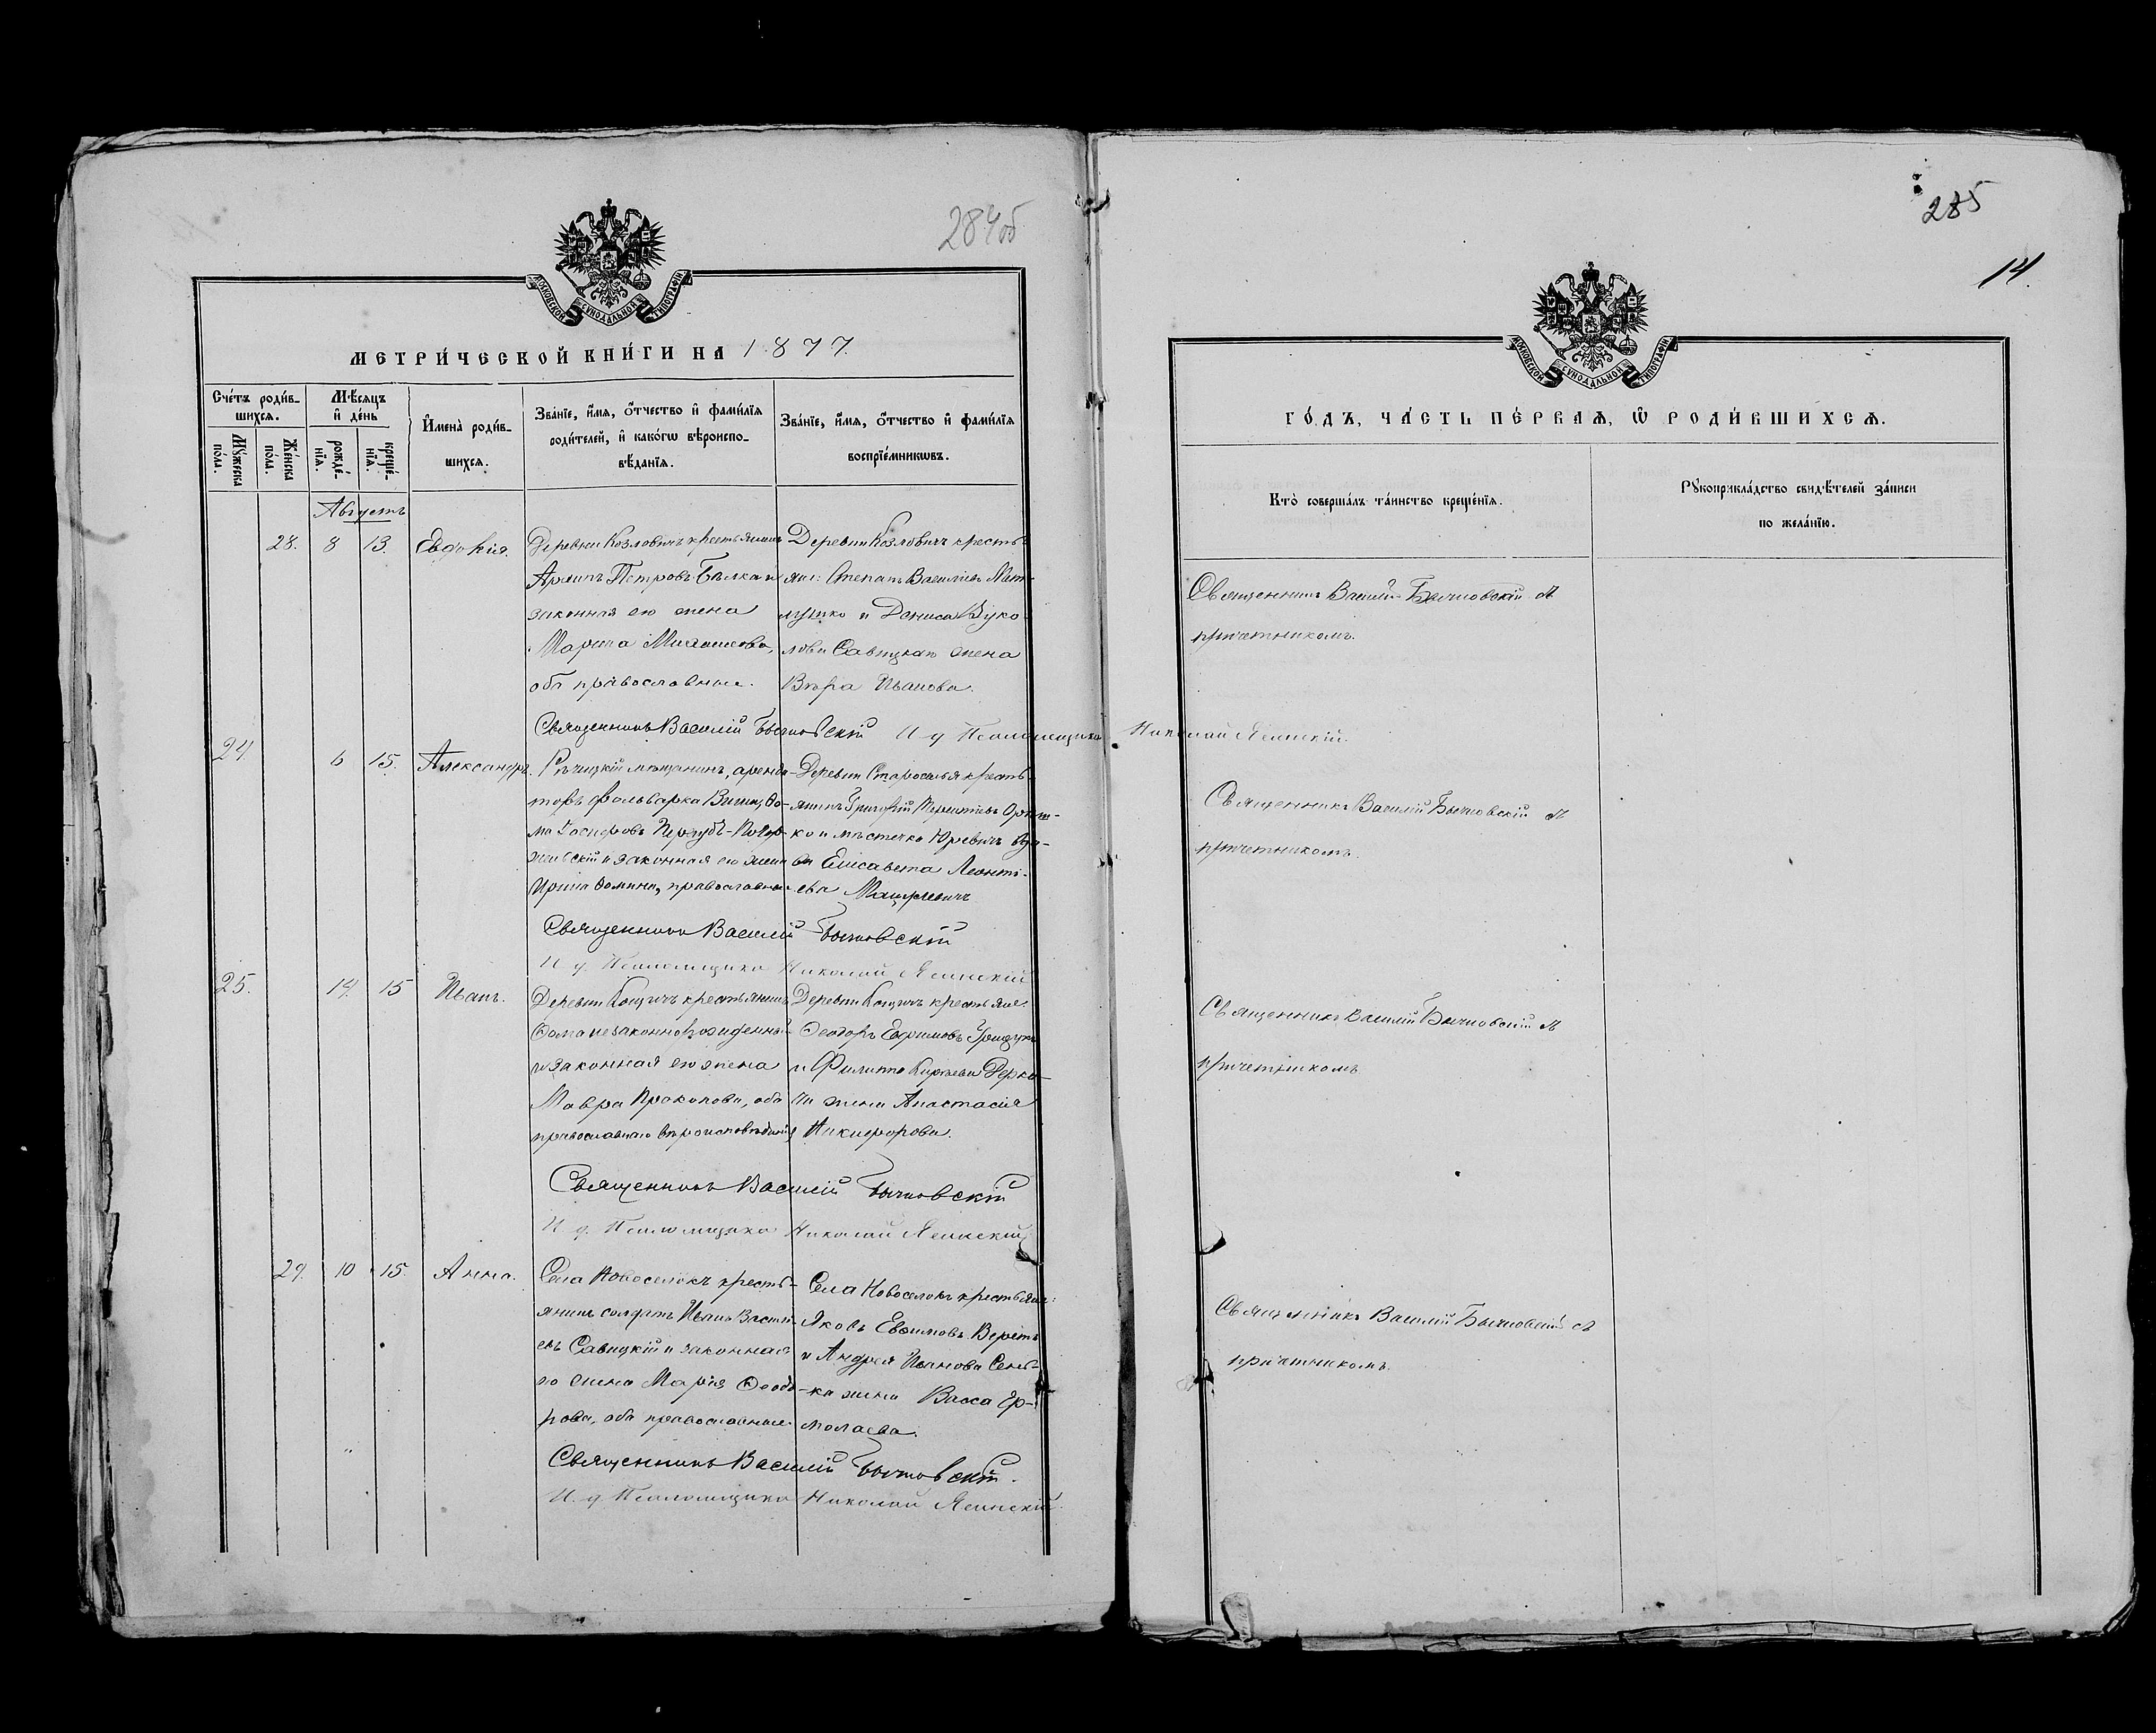 284об
МОСКОВСКОЙ СѴНОДАЛЬНОЙ ТИПОГРАФІИ
МЕТРИ́ЧЕСКОЙ КНИ́ГИ НА 1877.
Сче́тъ роди́в-
шихсѧ.
Мꙋ́жеска
по́ла.
Же́нска
по́ла.
Мѣ́сѧцъ
и҆ де́нь
рожде́-
нїѧ.
креще́-
нїѧ.
И҆мена̀ роди́в-
шихсѧ.
Зва́нїе, и҆́мѧ, ѻ҆́тчество и҆ фами́лїѧ
роди́телей, и҆ како́гѡ вѣ́роиспо-
вѣ́данїѧ.
Зва́нїе, и҆́мѧ, ѻ҆́тчество и҆ фами́лїѧ
воспрїе́мникѡвъ.
Августъ
28. 8 13. Евдокія.
Деревни Козловичъ крестьянинъ
Архипъ Петровъ Бѣлка и
законная его жена
Марина Михаилова,
оба православные.
Деревни Козловичъ кресть-
яне: Степанъ Василіевъ
и Дениса Вуко-
лова Савицкаго жена
Вѣра Иванова.
Священникъ Василій Бычковскій И д Псаломщика Николай Ясинскій.
24 6 15. Александръ.
Рѣчицкій мѣщанинъ, аренда-
торъ фольварка
и законная его жена
Ирина Фомина, православные
Деревни Староселья кресть-
янинъ Григорій
ко и мѣстечка Юревичъ
Елисавета Леонті-
ева Мацкевичъ
Священникъ Василій Бычковскій
И д. Псаломщика Николай Ясинскій
25. 14. 15 Иванъ.
Деревни крестьянинъ
Ѳома незаконнорожденный
и законная его жена
Мавра Прокопова, оба
православнаго вѣроисповѣданія
Деревни крестьяне:
Ѳеодоръ Ефимовъ
и Филиппа
жена Анастасія
Никифорова.
Священникъ Василій Бычковскій
И д. Псаломщика Николай Ясинскій
29. 10 15. Анна.
Села Новоселокъ кресть-
янинъ солдатъ Иванъ Василі-
евъ Савицкій и законная
его жена Марія Ѳеодо-
рова, оба православные.
Села Новоселокъ крестьяне:
Яковъ Евфимовъ
и Андрея Иванова Сень-
ка жена Васса Ер-
молаева.
Священникъ Василій Бычковскій.
И. д Псаломщика Николай Ясинскій.
285
14.
МОСКОВСКОЙ СѴНОДАЛЬНОЙ ТИПОГРАФІИ
ГО́ДЪ, ЧА́СТЬ ПЕ́РВАѦ, Ѡ҆ РОДИ́ВШИХСѦ.
Кто̀ соверша́лъ та́инство креще́нїѧ.
Рꙋкоприкла́дство свидѣ́телей за́писи
по жела́нїю.
Священникъ Василій Бычковскій съ
причетникомъ.
Священникъ Василій Бычковскій съ
причетникомъ.
Священникъ Василій Бычковскій съ
причетникомъ
Священникъ Василій Бычковскій съ
причетникомъ.